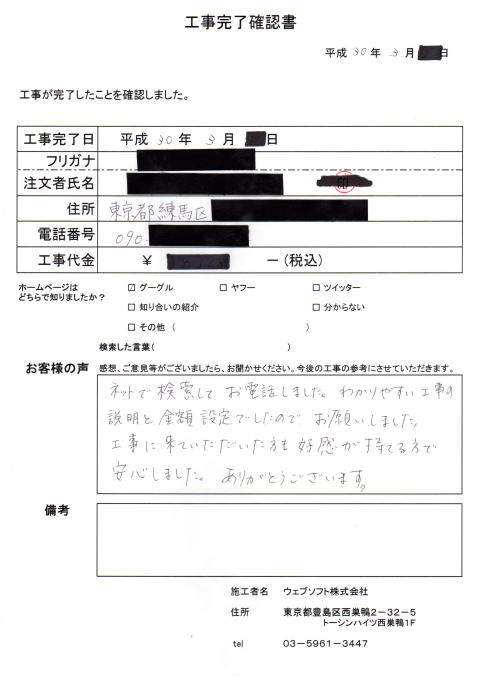 工事完了確認書
平成 30 年 3 月 日
工事が完了したことを確認しました。
工事完了日 平成 30 年 3 月 日
フリガナ
注文者氏名 印
住所 東京都練馬区
電話番号 090-
工事代金 ¥ ー(税込)
ホームページは
どちらで知りましたか?
☑ グーグル □ ヤフー □ ツイッター
□ 知り合いの紹介 □ 分からない
□ その他 ( )
検索した言葉( )
お客様の声 感想、ご意見等がございましたら、お聞かせください。今後の工事の参考にさせていただきます。
ネットで検索して お電話しました。わかりやすい工事の
説明と金額設定でしたので お願いしました。
工事に来ていただいた方も好感が持てる方で
安心しました。 ありがとうございます。
備考
施工者名 ウェブソフト株式会社
住所 東京都豊島区西巣鴨2-32-5
トーシンハイツ西巣鴨1F
tel 03-5961-3447